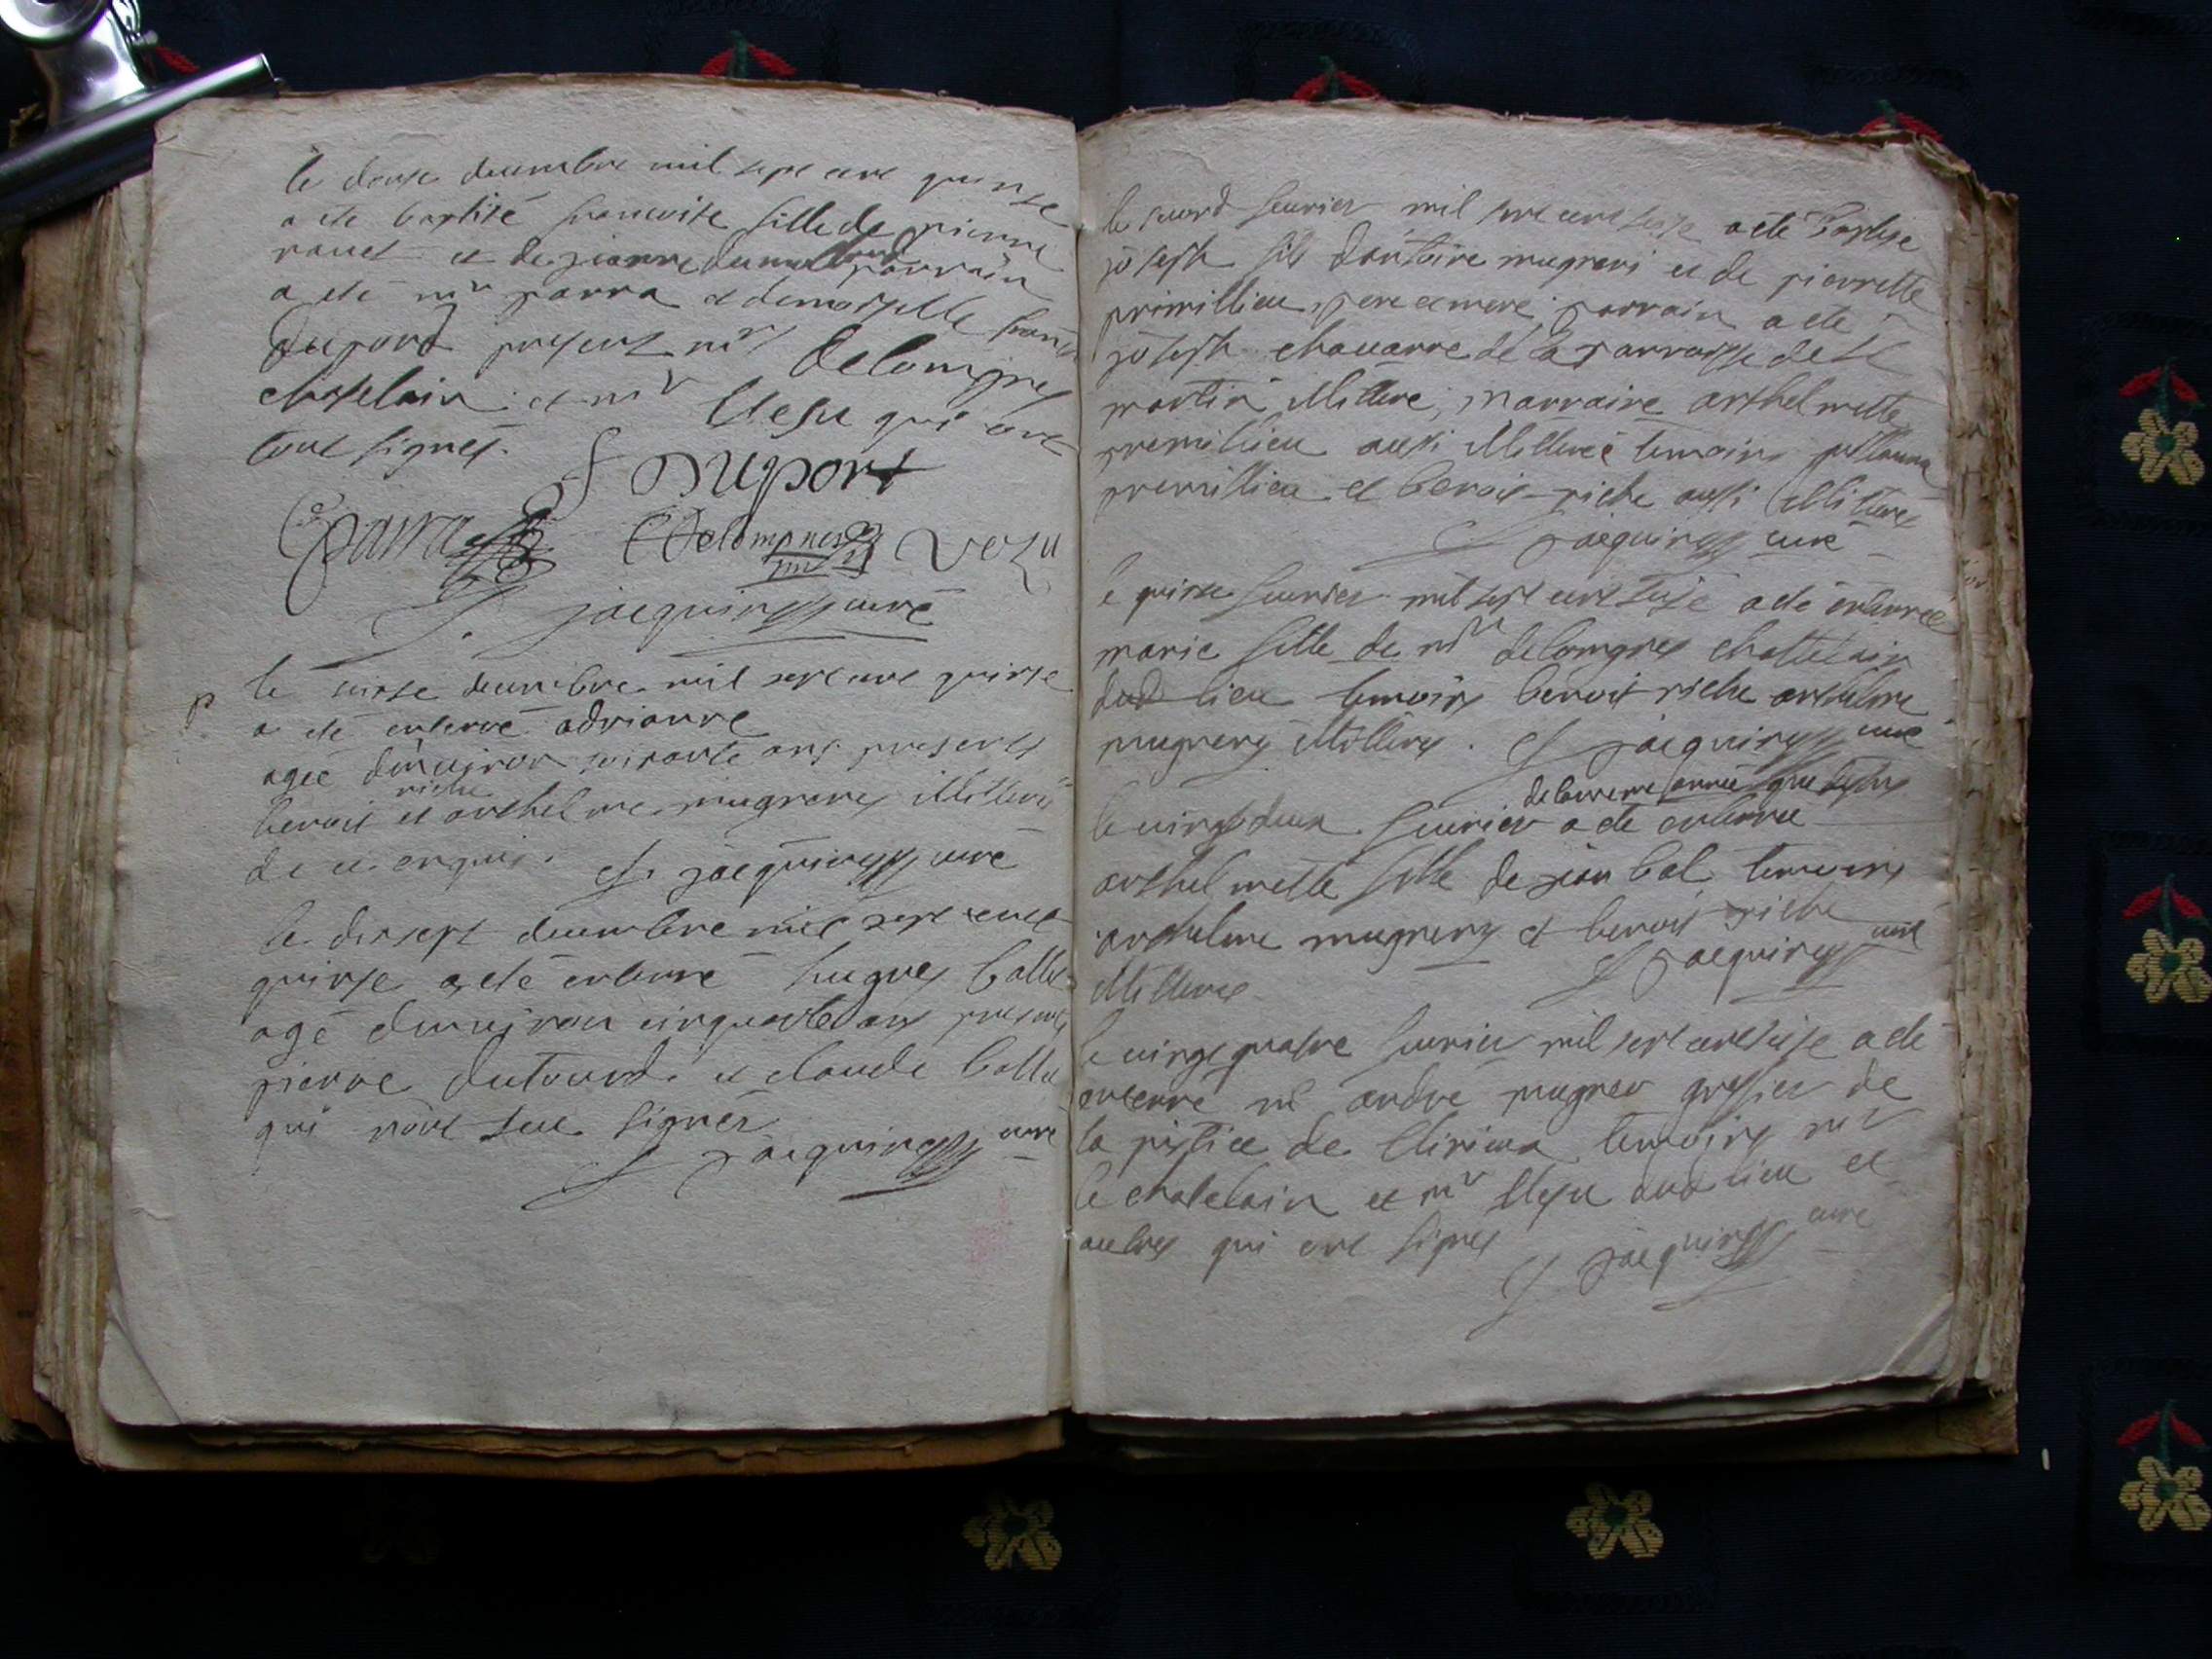 le douse decembre mil sept cent quinse
a ete baptisé francoise fille de pierre
rauet et de jeanne parrain
a eté mr parra et demoiselle
duport presents mrs delompnes
chatelain et mr Uesu qui ont
tous signes.
f Duport
parra Delompnes Vezu
J. jacquines curé
p le decembre mil sept cent quinse
a eté enterré adrianne
agee denuiron soisante ans presents
riche
benoit et anthelme mugnery illitteré
de ce enquis. J. jacquines curé
le dix sept decembre mil sept cent
quinse a eté enterré hugues ballet
agé denuiron cinquante ans presents
pierre dutourd et claude ballet
qui nont sceu signer
J jacquines curé
le second feurier mil sept cent seise a eté baptise
joseph fils dantoine mugneri et de pierrette
primillieu, pere et mere parrain a ete
joseph chauanne de la parroisse de St
martin illitere, marraine anthelmette
premillieu aussi illiteree temoins
premillieu et benoit riche aussi illiteres
J jacquines curé
le quinse feurier mil sept cent seise a eté enterrée
marie fille de mr delompnes chattelain
dud lieu temoins benoit riche anthelme
mugnery illitteres. J jacquines curé
de la meme année que dessus
le vingt deux feurier a eté enterree
anthelmette fille de jean bal temoins
anthelme mugnery et benoit riche
J jacquines curé
illitteres
le vingt quatre feurier mil sept cent seise a eté
enterré mr andré mugnier greffier de
la justice de temoins mr
le chatelain et mr Uesu dud lieu et
autres qui ont signes
J jacquines curé